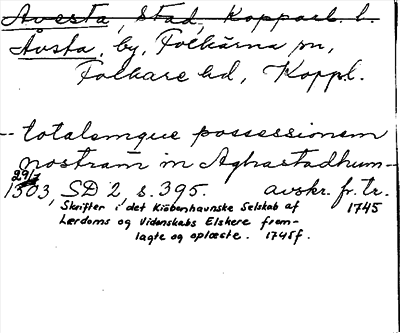 Avesta, stad, Kopparb. l.
Åvsta, by, Folkärna sn,
Folkare hd, Koppl.
-- totalemque possessionem
nostram in Aghastadhum--
29/7
1303, SD 2, s. 395. avskr. fr. tr.
1745
Skrifter i det Kiöbenhavnske Selskab af
Lærdoms og Videnskabs Elskere frem-
lagte og oplæste. 1745f.